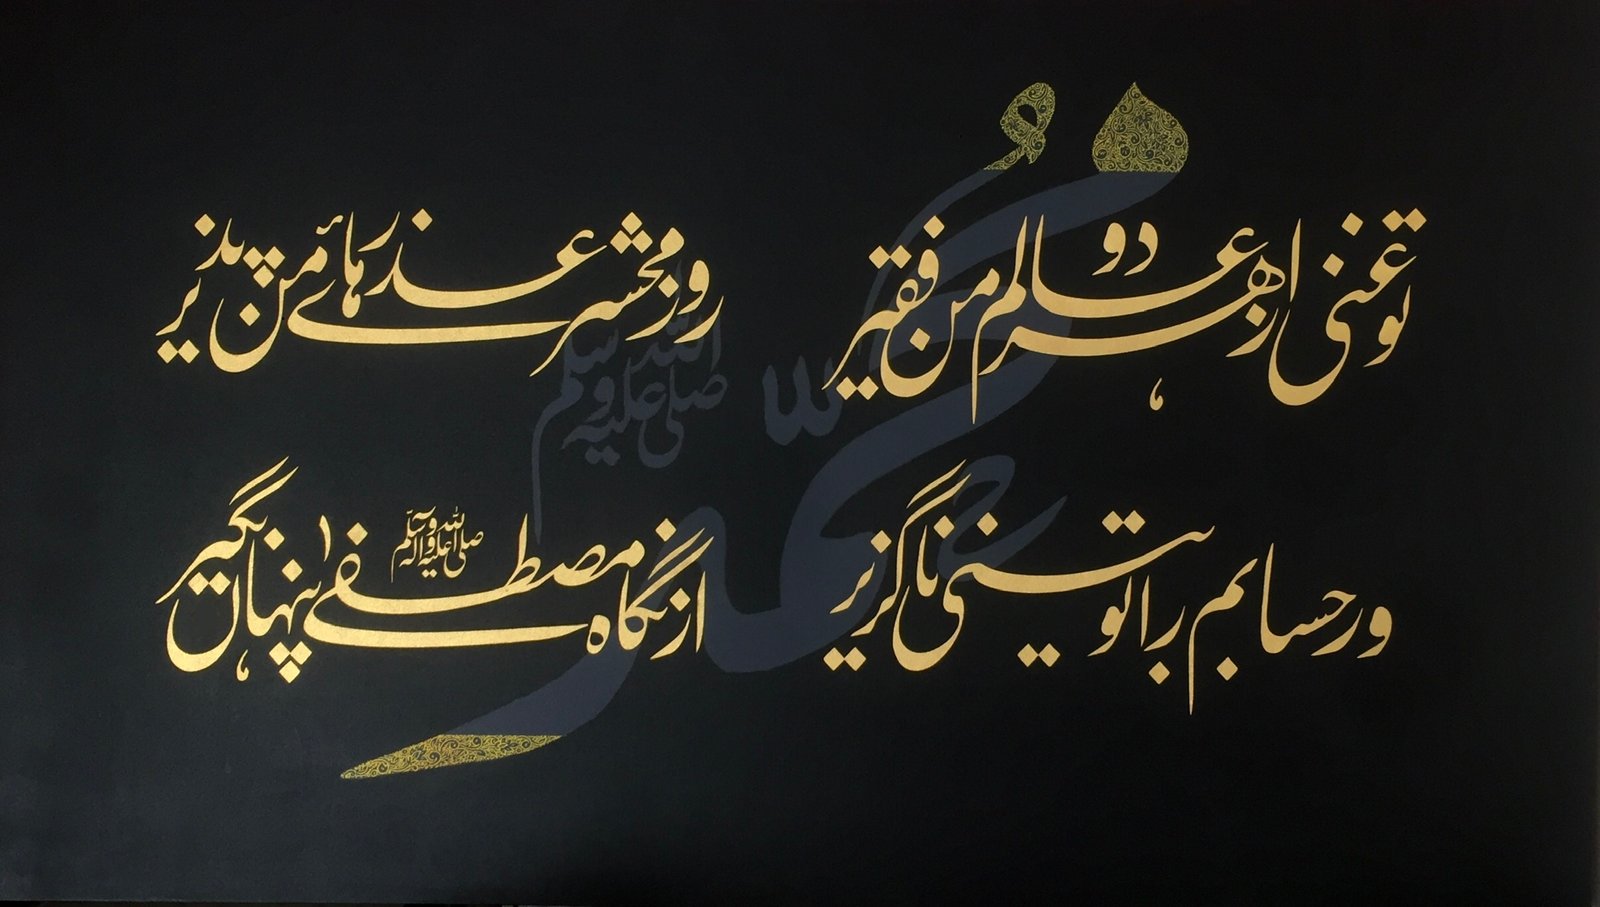 تو غنی از هر دو عالم من فقیر
روز محشر عذر هائے من پذیر
ور حسابم را تو بینی ناگزیر
از نگاہ مصطفیٰ صلی اللہ علیہ وآلہ وسلم پنہاں بگیر
محمد
صلی اللہ علیہ وسلم